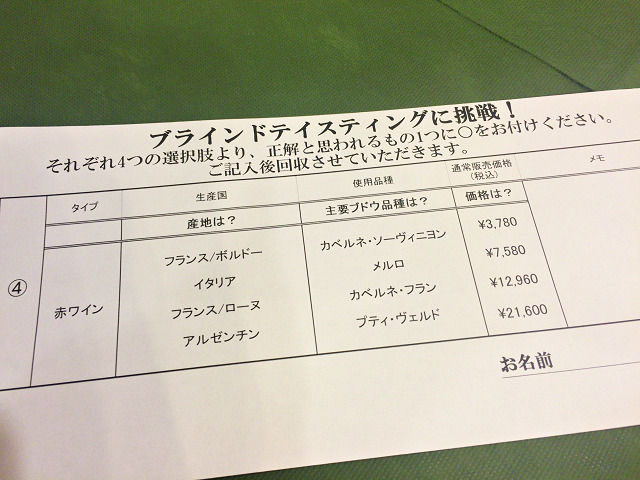 ブラインドテイスティングに挑戦！
それぞれ4つの選択肢より、正解と思われるもの1つに○をお付けください。
ご記入後回収させていただきます。
タイプ 生産国 使用品種 通常販売価格(税込) メモ
産地は？ 主要ブドウ品種は？ 価格は？
④ 赤ワイン
フランス/ボルドー カベルネ・ソーヴィニヨン ¥3,780
イタリア メルロ ¥7,580
フランス/ローヌ カベルネ・フラン ¥12,960
アルゼンチン プティ・ヴェルド ¥21,600
お名前